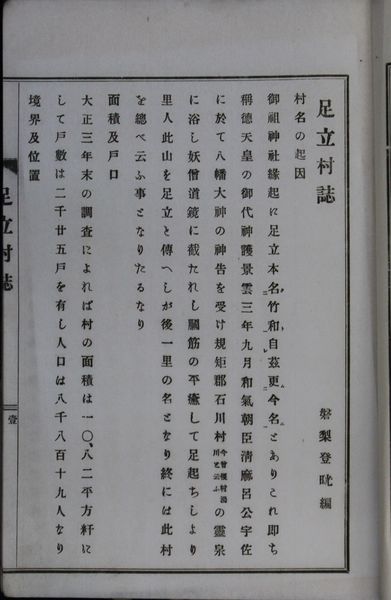 足立村誌
磐梨登畩編
村名の起因
御祖神社緣起に足立本名竹和自茲更今名とありこれ即ち
稱德天皇の御代神護景雲三年九月和氣朝臣淸麿呂公宇佐
に於て八幡大神の神告を受け規矩郡石川村今曾根村湯川と云ふの靈泉
に浴し妖僧道鏡に截たれし關筋の平癒して足起ちしより
里人此山を足立と傳へしが後一里の名となり終には此村
を總べ云ふ事となりたるなり
面積及戶口
大正三年末の調査によれば村の面積は一〇、八二平方粁に
して戶數は二千廿五戶を有し人口は八千八百十九人なり
境界及位置
足立村誌
壹